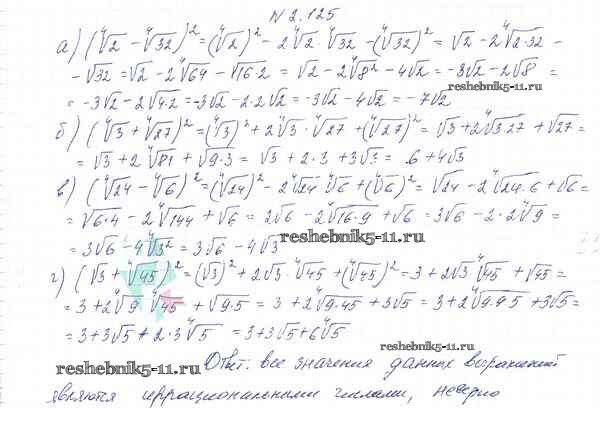 N 2.125
а) (∜2 − ∜32)² = (∜2)² − 2∜2 · ∜32 − (∜32)² = √2 − 2∜2·32 −
− √32 = √2 − 2∜64 − √16·2 = √2 − 2∜8² − 4√2 = −3√2 − 2√8 =
= −3√2 − 2√4·2 = −3√2 − 2·2√2 = −3√2 − 4√2 = −7√2
reshebnik5-11.ru
б) (∜3 + ∜27)² = (∜3)² + 2∜3 · ∜27 + (∜27)² = √3 + 2∜3·27 + √27 =
= √3 + 2∜81 + √9·3 = √3 + 2·3 + 3√3 = 6 + 4√3
в) (∜24 − ∜6)² = (∜24)² − 2∜24 ∜6 + (∜6)² = √24 − 2∜24·6 + √6 =
= √6·4 − 2∜144 + √6 = 2√6 − 2∜16·9 + √6 = 3√6 − 2·2∜9 =
= 3√6 − 4∜3² = 3√6 − 4√3
reshebnik5-11.ru
г) (√3 + ∜45)² = (√3)² + 2√3 · ∜45 + (∜45)² = 3 + 2√3 ∜45 + √45 =
= 3 + 2∜9 · ∜45 + √9·5 = 3 + 2∜9·45 + 3√5 = 3 + 2∜9·9·5 + 3√5 =
= 3 + 3√5 + 2·3∜5 = 3 + 3√5 + 6∜5
reshebnik5-11.ru
reshebnik5-11.ru
Ответ: все значения данных выражений
являются иррациональными числами, неверно